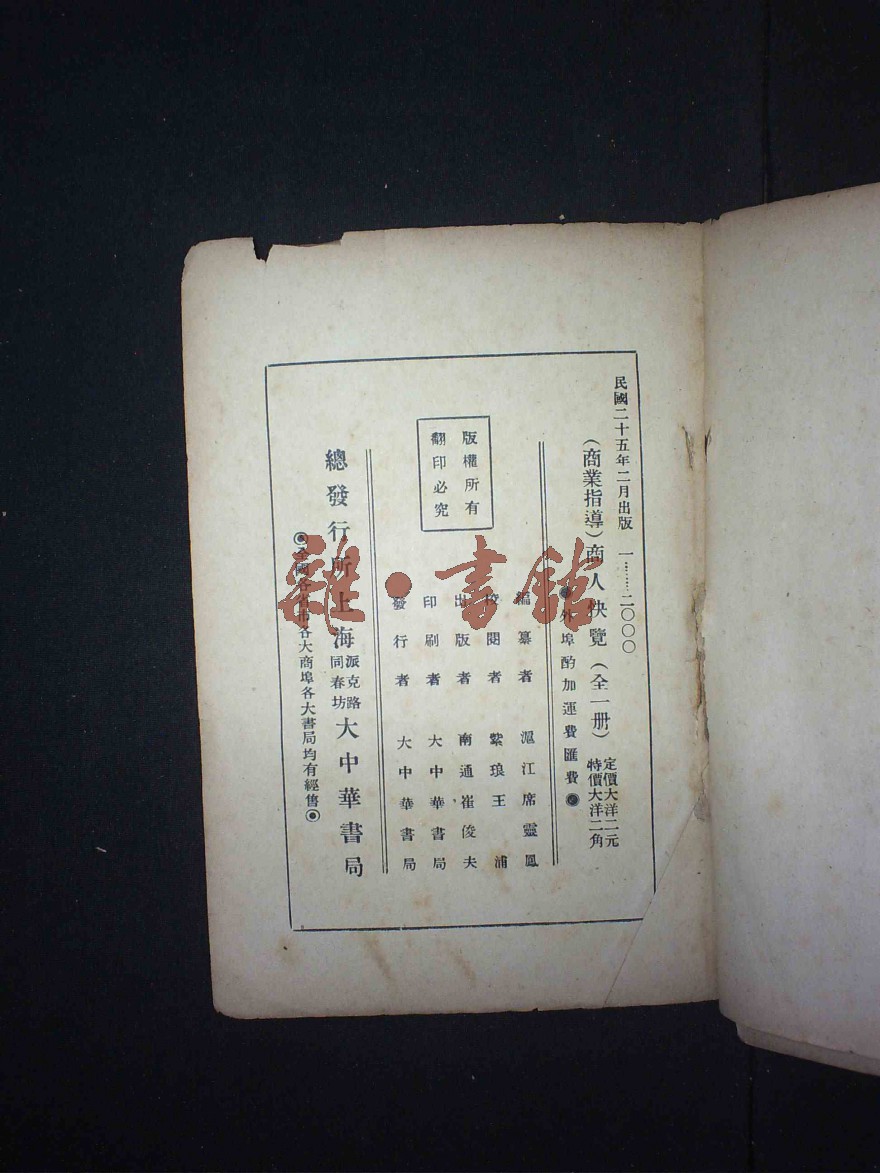 民國二十五年二月出版 一……二〇〇〇
(商業指導)商人快覽(全一冊)
定價大洋二元
特價大洋二角
外埠酌加運費匯費
編纂者 滬江席靈鳳
校閱者 紫琅王浦
出版者 南通崔俊夫
印刷者 大中華書局
發行者 大中華書局
版權所有
翻印必究
總發行所上海派克路同春坊大中華書局
◉全國各省市各大商埠各大書局均有經售◉
雜·書館